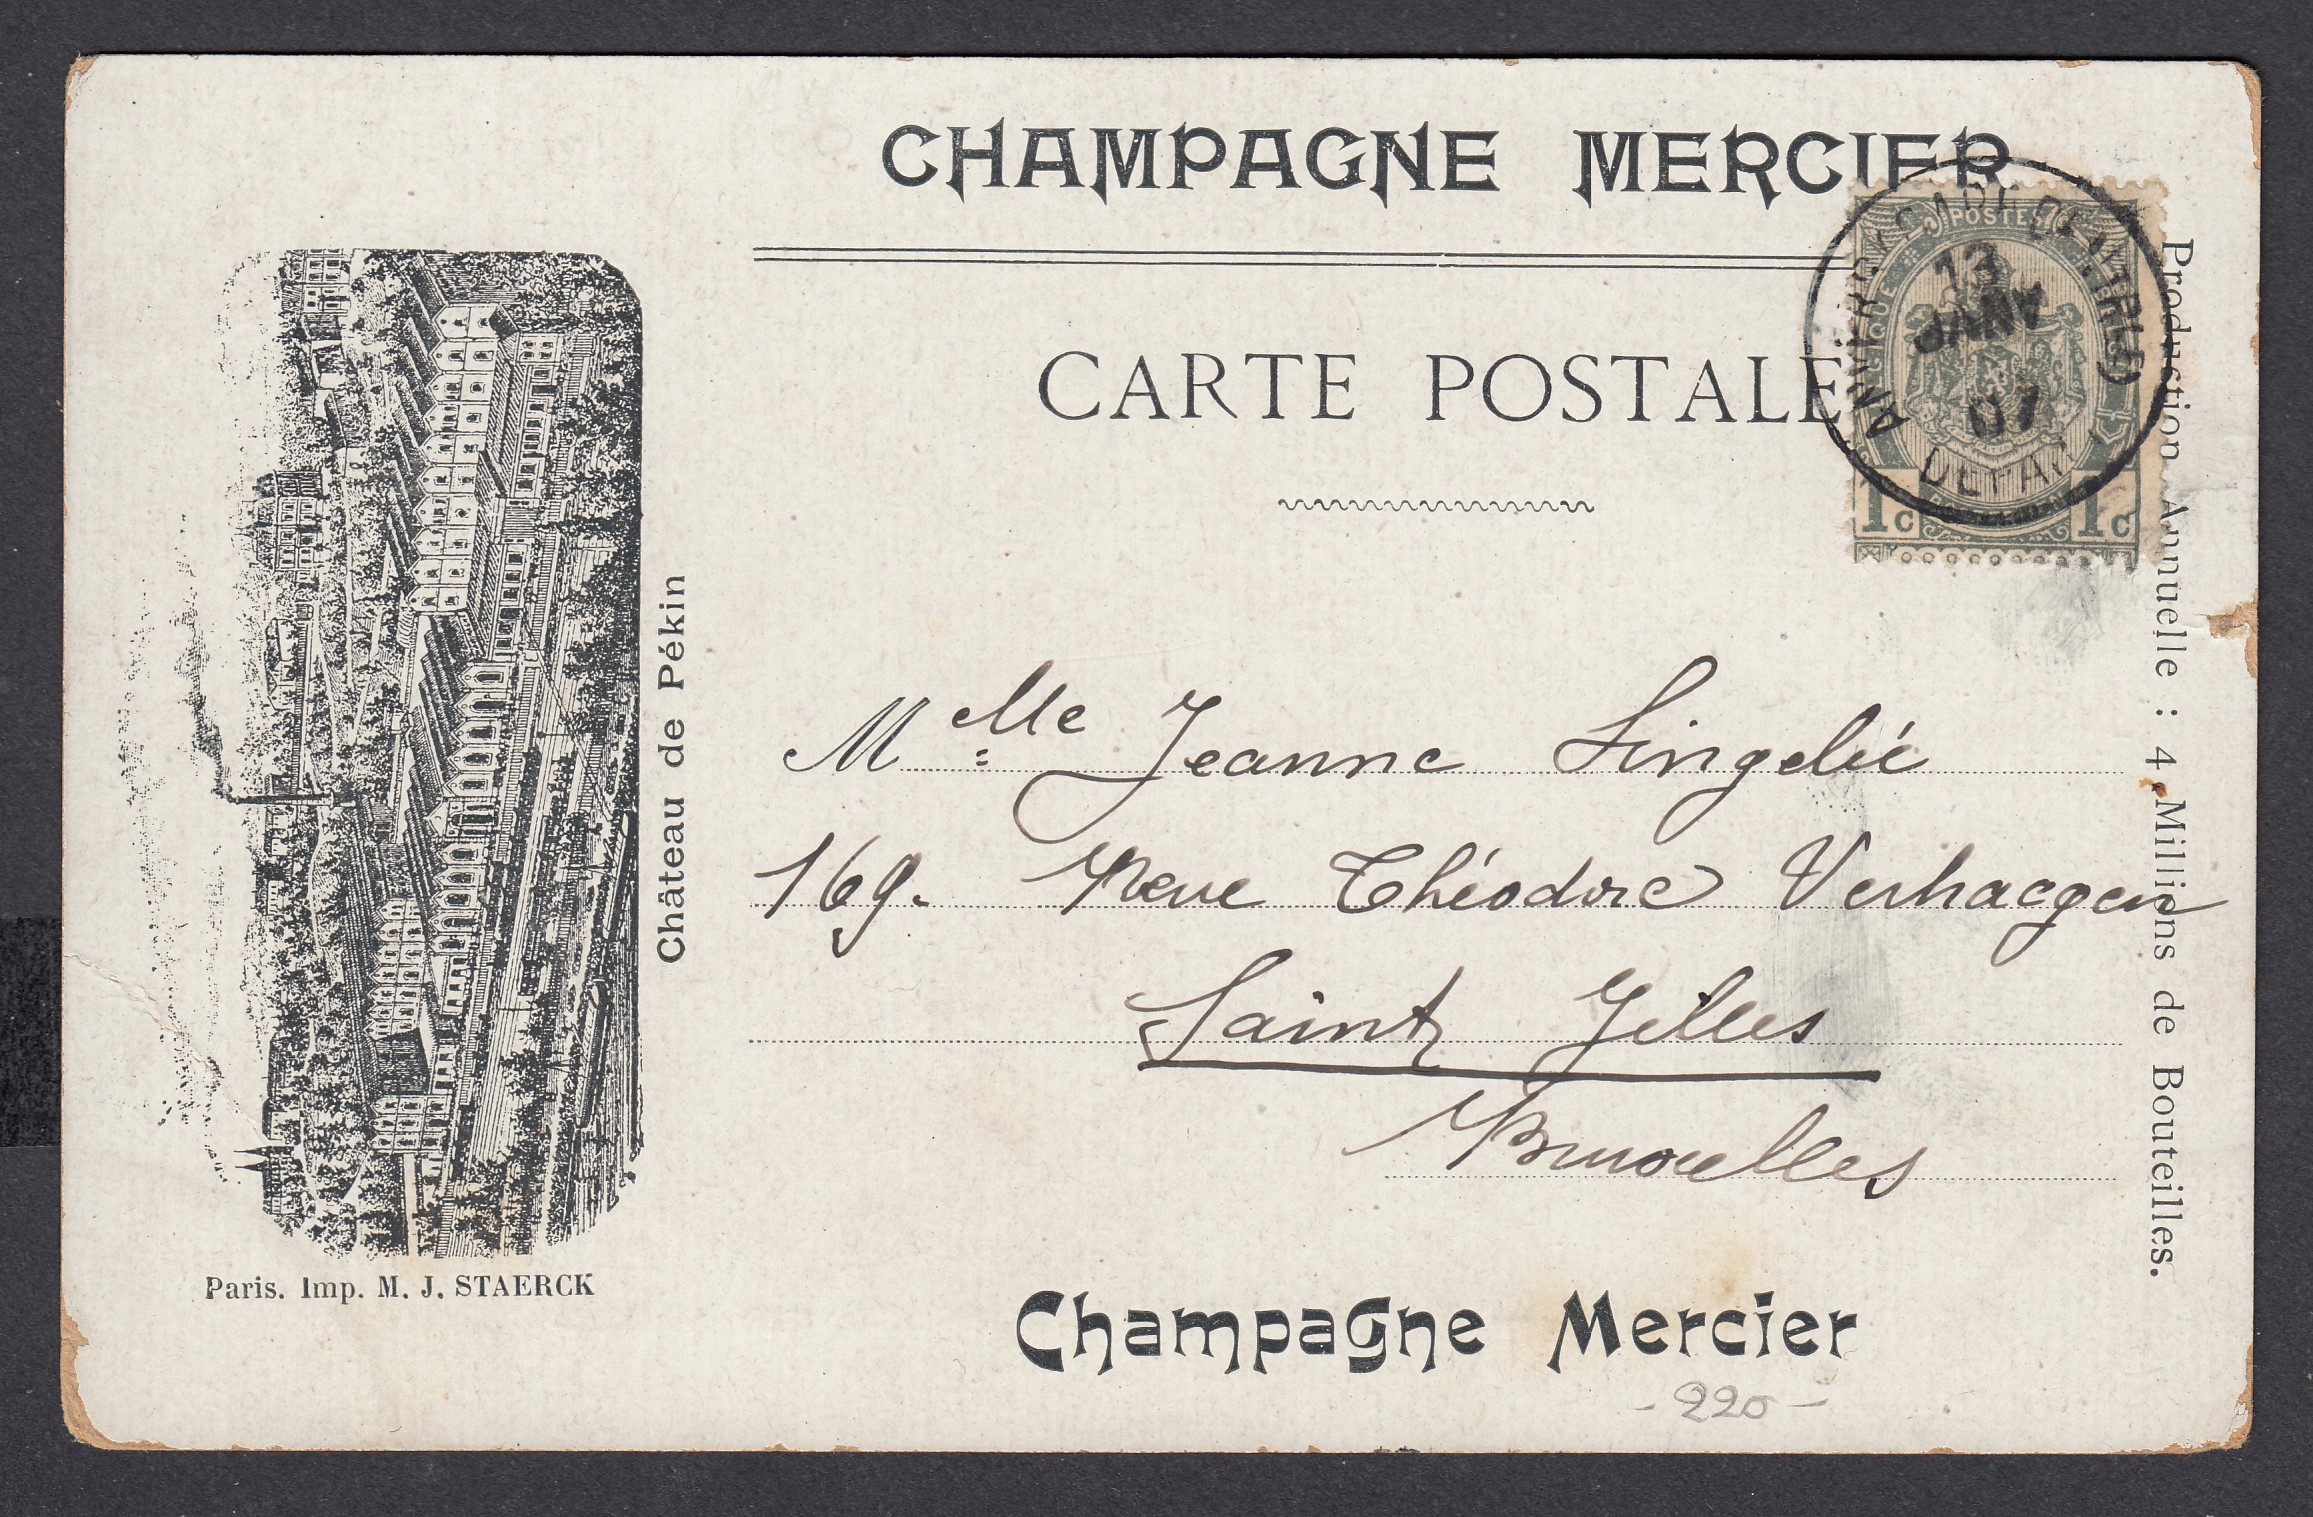 CHAMPAGNE MERCIER
CARTE POSTALE
POSTES
ANVERS (GARE CENTRALE)
13
JANV
07
DEPART
1c 1c
Production Annuelle : 4 Millions de Bouteilles.
Château de Pékin
Melle Jeanne Singelée
169. Rue Théodore Verhaegen
Saint Gilles
Bruxelles
Paris. Imp. M. J. STAERCK
Champagne Mercier
- 220 -